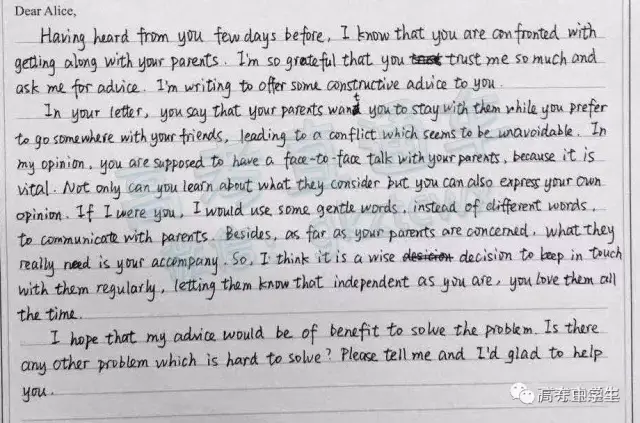 Dear Alice,
Having heard from you few days before, I know that you are confronted with
getting along with your parents. I'm so grateful that you trust me so much and
ask me for advice. I'm writing to offer some constructive advice to you.
In your letter, you say that your parents want you to stay with them while you prefer
to go somewhere with your friends, leading to a conflict which seems to be unavoidable. In
my opinion, you are supposed to have a face-to-face talk with your parents, because it is
vital. Not only can you learn about what they consider but you can also express your own
opinion. If I were you, I would use some gentle words, instead of different words,
to communicate with parents. Besides, as far as your parents are concerned, what they
really need is your accompany. So, I think it is a wise desicion decision to keep in touch
with them regularly, letting them know that independent as you are, you love them all
the time.
I hope that my advice would be of benefit to solve the problem. Is there
any other problem which is hard to solve? Please tell me and I'd glad to help
you.